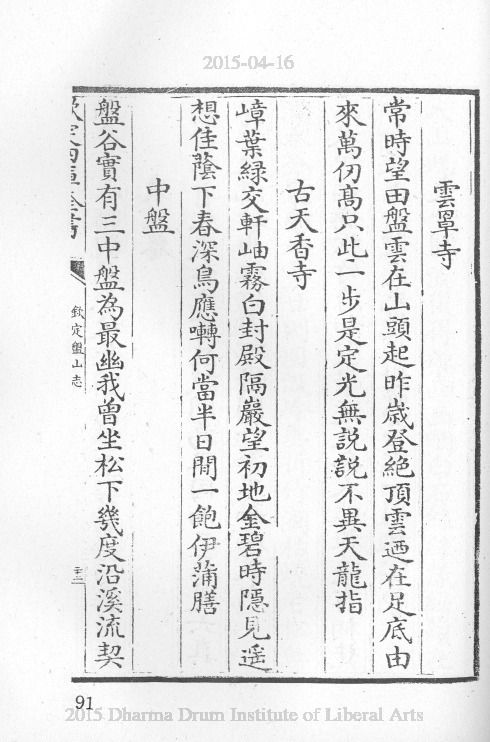 2015-04-16
雲罩寺
常時望田盤雲在山頭起昨歲登絶頂雲迺在足底由
來萬仞髙只此一步是定光無説説不異天龍指
古天香寺
嶂葉緑交軒岫霧白封殿隔巖望初地金碧時隱見遥
想佳蔭下春深鳥應囀何當半日閒一飽伊蒲膳
中盤
盤谷實有三中盤為最幽我曾坐松下幾度沿溪流契
欽定四庫全書
欽定盤山志
91
2015 Dharma Drum Institute of Liberal Arts